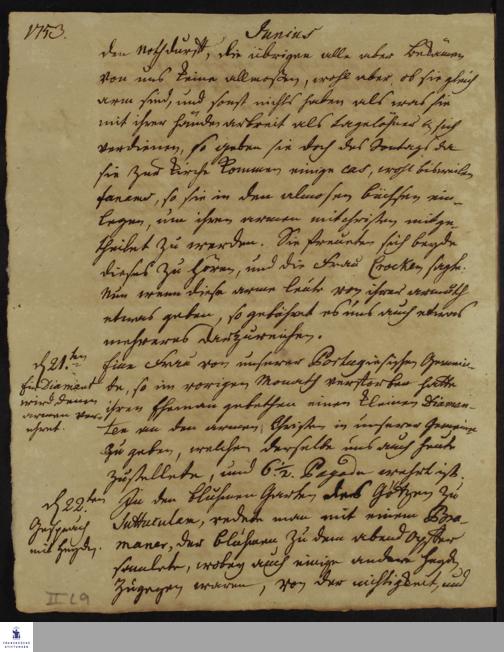 1753. Junius
den Nothdurfft, die übrigen alle aber bekämen
von uns keine allmoßen, wohl aber ob sie gleich
arm sind, und sonst nichts haben als was sie
mit ihrer Händen arbeit als Tagelöhner & sich
verdienen, so geben sie doch des Sontags da
sie zur Kirche kommen einige cas, wohl bisweilen
fanams, so sie in den almosen büchsen ein-
legen, um ihren armen mitchristen mitge-
theilet zu werden. Sie freueten sich beyde
dieses zu hören, und die Frau Crocken sagte.
Nun wenn diese arme leute von ihrer armuth
etwas geben, so gebührt es uns auch etwas
mehreres darzureichen.
d 21.ten
Ein Diamant
wird denen
armen ver-
ehret.
Eine Frau von unserer Portugiesischen Gemein-
de, so im vorigen Monath verstorben hatte
ihren Ehemann gebethen einen kleinen Diaman-
ten an den armen Christen in unserer Gemeine
zu geben, welchen derselbe uns auch heute
zustellete, und 6 1/2. Pagode wehrt ist.
d 22.ten
Gespräch
mit Heyden.
In den bluhmen Garten des Götzen zu
redete man mit einem Bra-
maner, der bluhmen zu dem abend Opffer
samlete, wobey auch einige andere Heyden
zugegen waren, von der nichtigkeit, und
II L 9
FRANCKESCHE
STIFTUNGEN